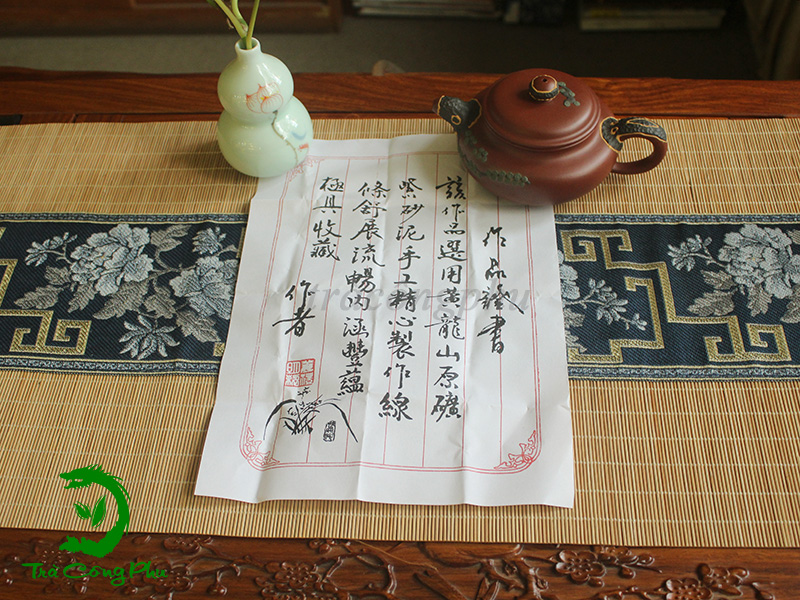 作品證書
該作品選用黄龍山原礦
紫砂泥手工精心製作線
條舒展流暢内涵豐蘊
極具收藏
作者
tracongphu
Trà Công Phu